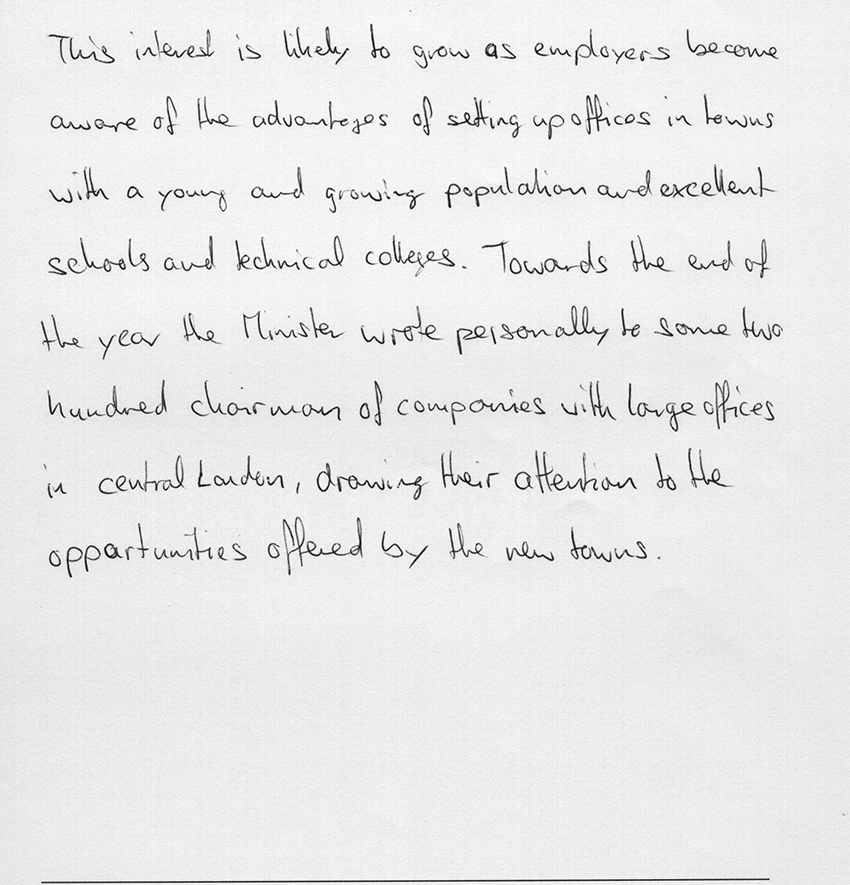 This interest is likely to grow as employers become
aware of the advantages of setting up offices in towns
with a young and growing population and excellent
schools and technical colleges. Towards the end of
the year the Minister wrote personally to some two
hundred chairman of companies with large offices
in central London, drawing their attention to the
opportunities offered by the new towns.